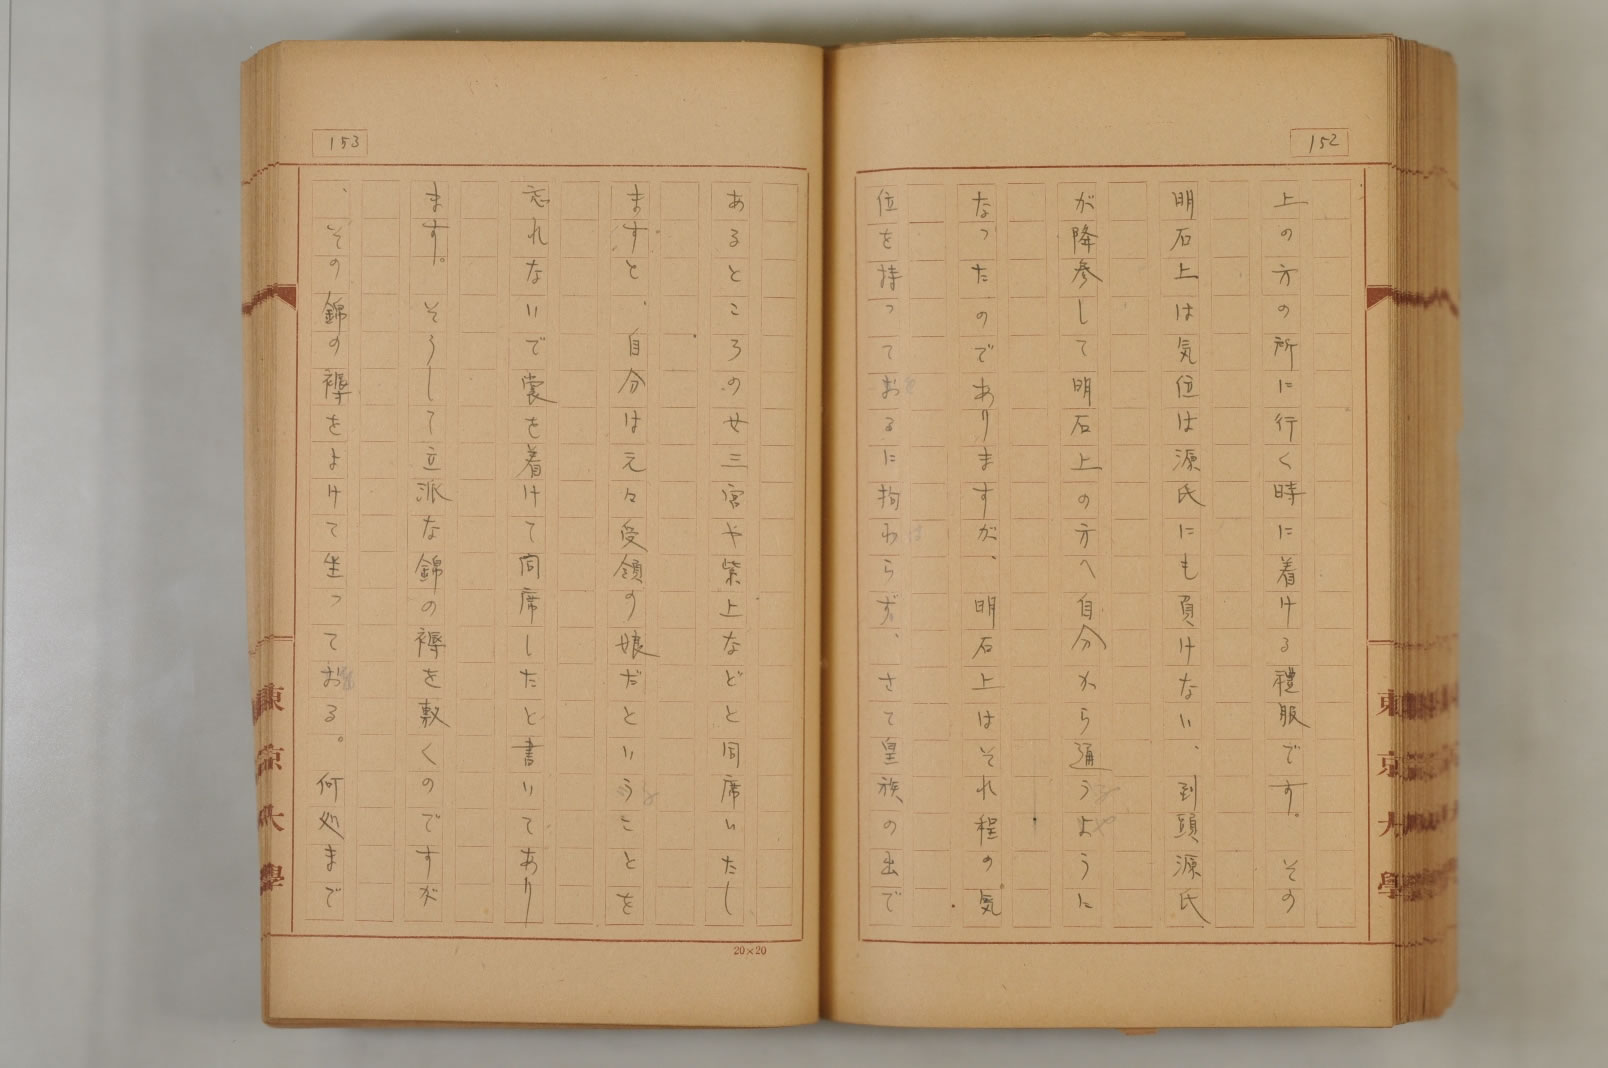 152
上の方の所に行く時に着ける禮服です。その
明石上は気位は源氏にも負けない、到頭源氏
が降参して明石上の方へ自分から通うように
なったのでありますが、明石上はそれ程の気
位を持っておるに拘わらず、さて皇族の出で
東京大學
153
あるところの女三宮や紫上などと同席いたし
ますと、自分は元々受領の娘だということを
忘れないで裳を着けて同席したと書いてあり
ます。そうして立派な錦の褥を敷くのですが
、その錦の褥をよけて坐っておる。何処まで
20×20
東京大學